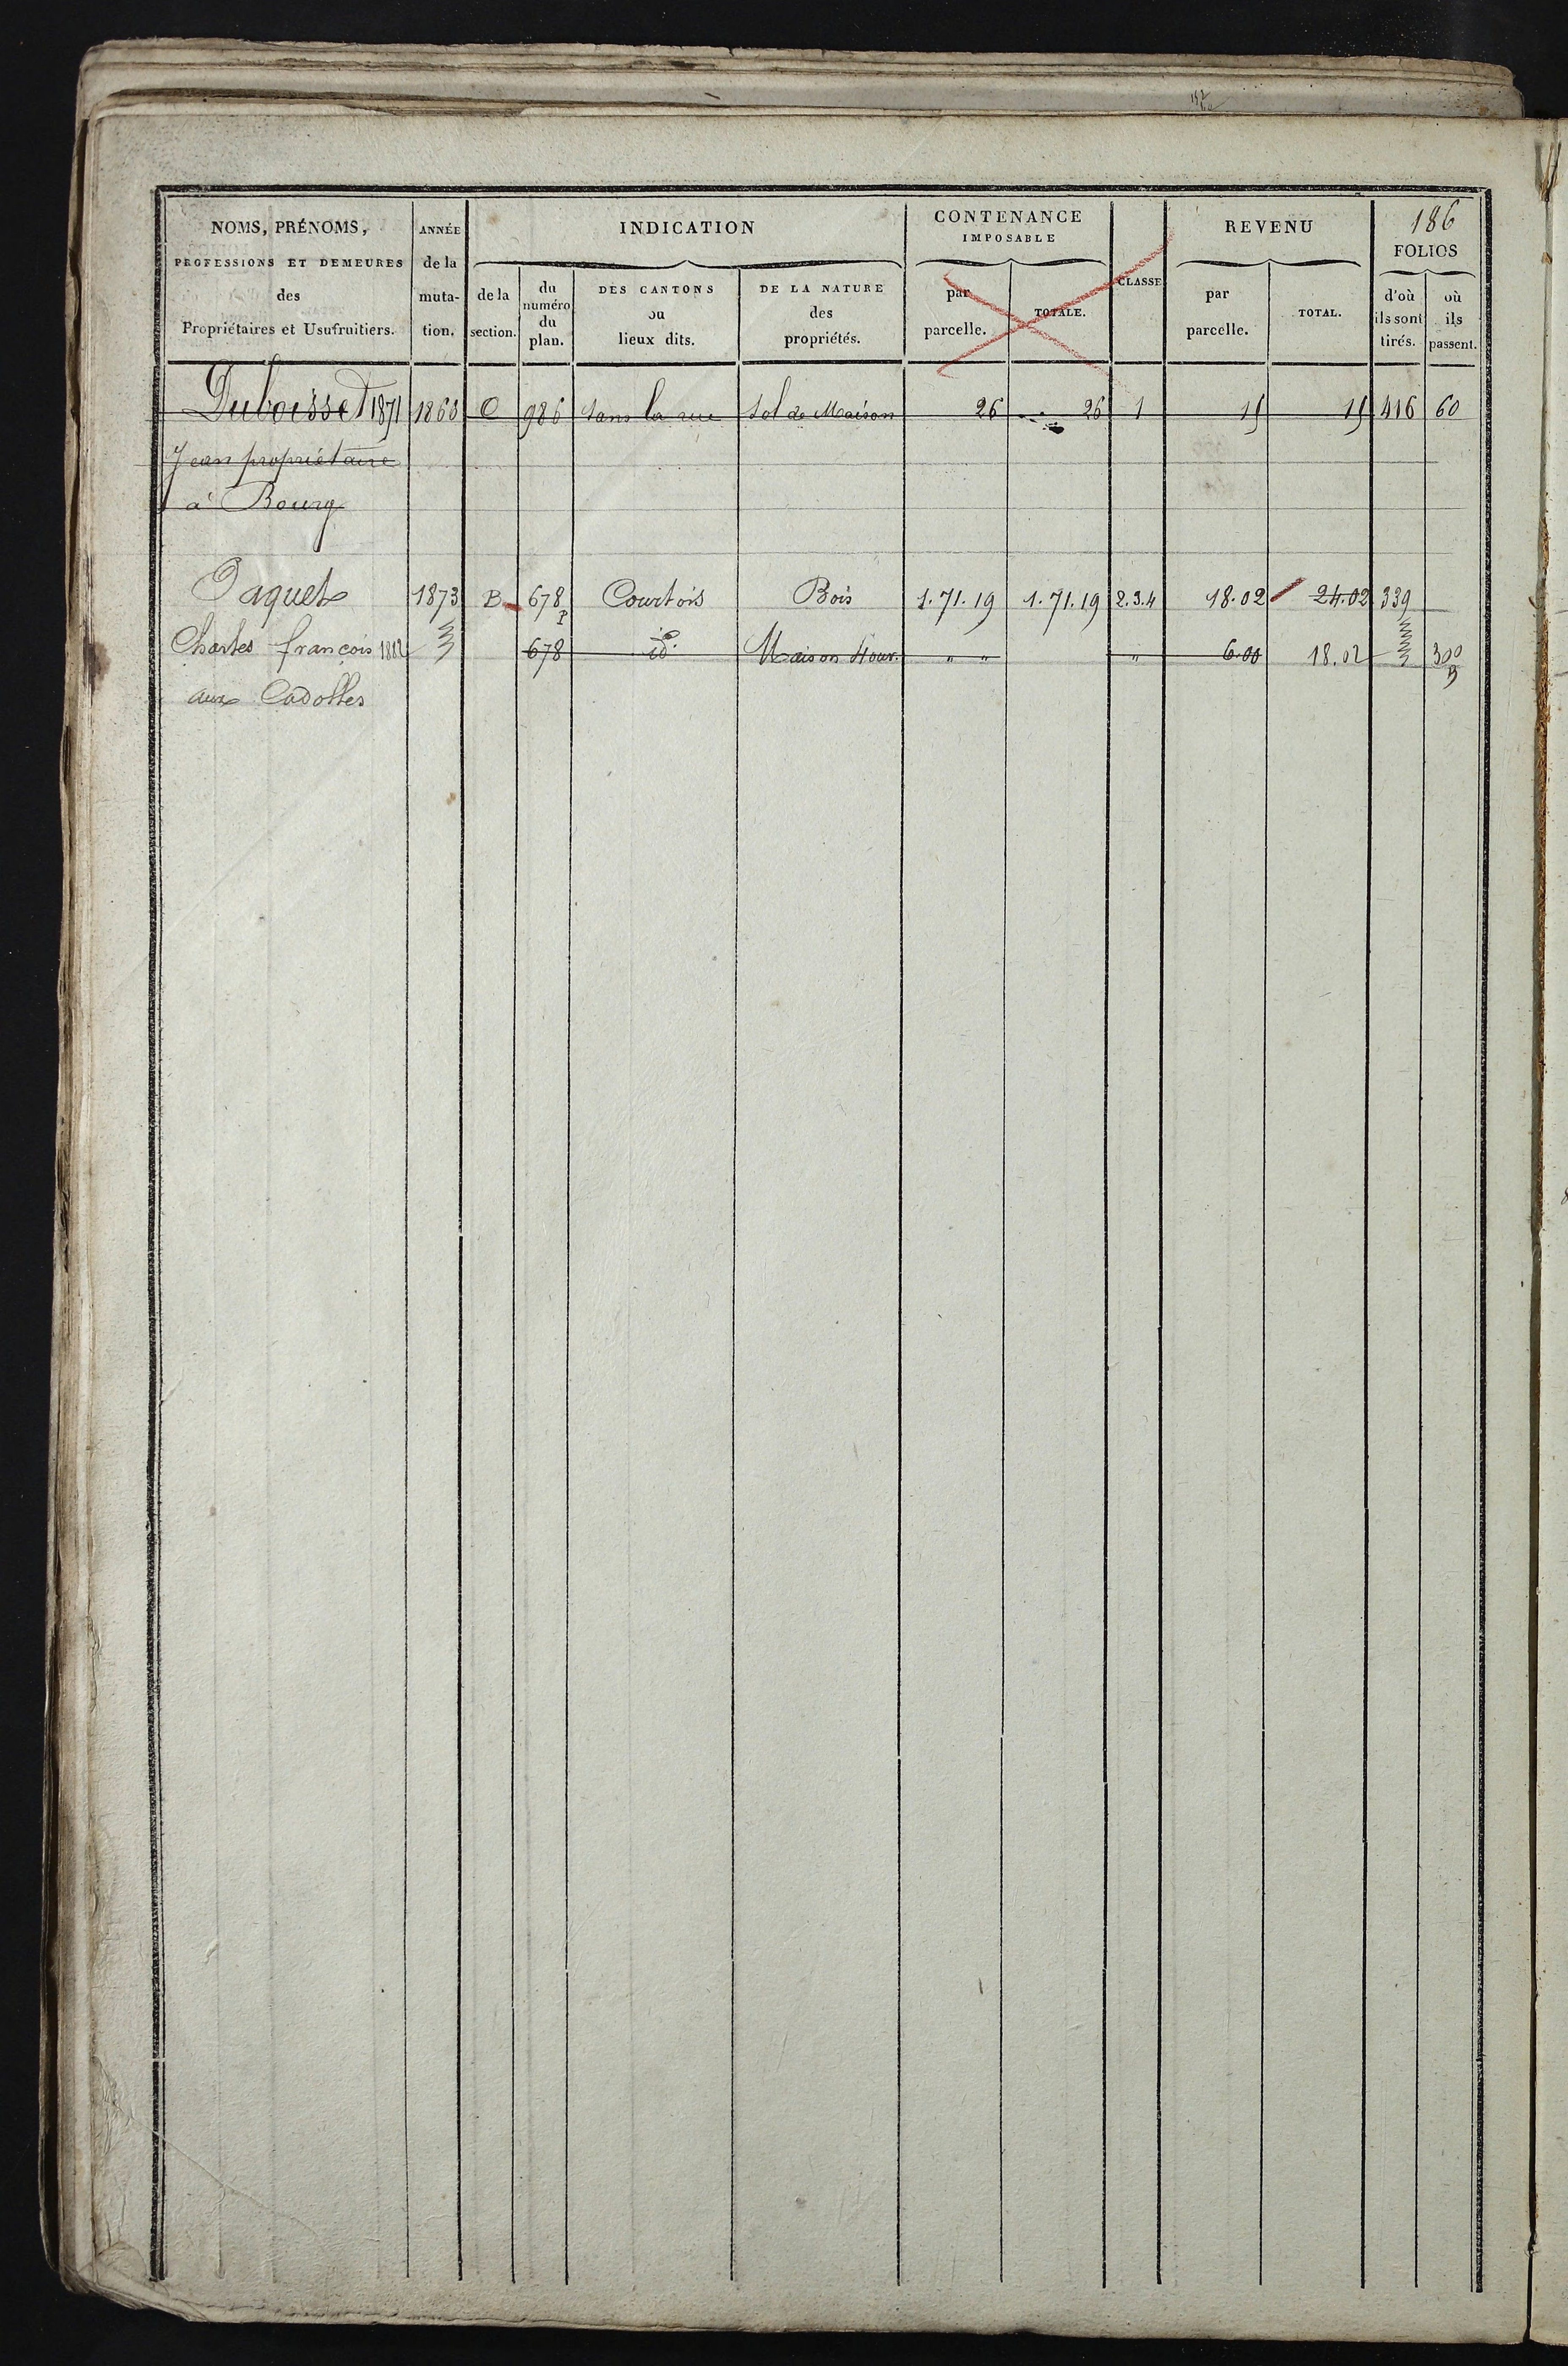 186
NOMS, PRÉNOMS, PROFESSIONS ET DEMEURES des Propriétaires et Usufruitiers.
ANNÉE de la muta- tion.
INDICATION
de la section.
du numéro du plan.
DES CANTONS ou lieux dits.
DE LA NATURE des propriétés.
CONTENANCE IMPOSABLE
par parcelle.
TOTALE.
CLASSE
REVENU
par parcelle.
TOTAL.
FOLIOS
d'où ils sont tirés.
où ils passent.
Duboisset 1871 1868 C 986 dans la rue Sol de Maison 26 26 1 15 15 416 60
Jean propriétaire
à Bourg
Paquet 1873 B 678 P Courtois Bois 1.71.19 1.71.19 2.3.4 18.02 24.02 339
Charles françois 1882 678 id. Maison 4 ouv. " " " 6.00 18.02 300
aux Cadolles